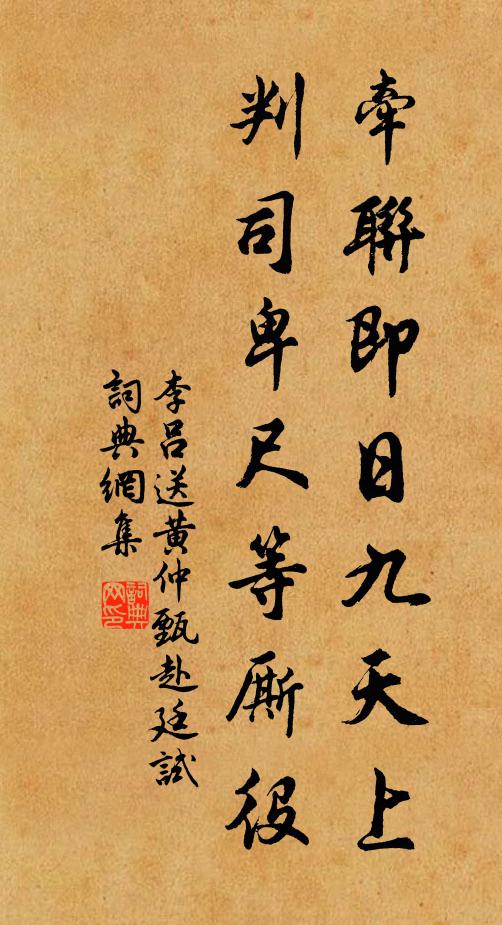 牽聯即日九天上
判司卑尺等厮役
李呂送黃仲甄赴廷試
詞典網集
詞典网印